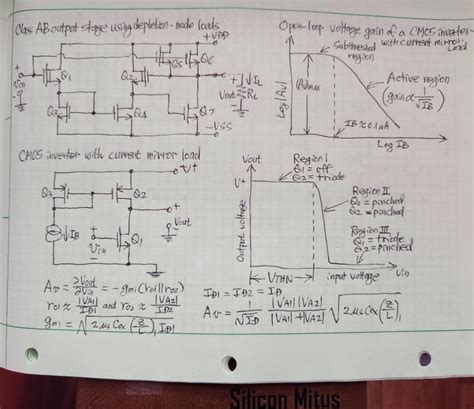 Class AB output stage using depletion-mode loads
+VDD
Q5
Q6
Q1
Q2
+
Vin
-
+
Vout
-
↓IL
RL
Q3
Q4
Q7
-VSS
Open-loop voltage gain of a CMOS inverter
with current mirror
Load
Subthreshold
region
|Amax|
Active region
(gain α 1/√IB)
Log|Av|
IB≈0.1μA
Log IB
CMOS inverter with current mirror load
V+
Q3
Q2
↓IB
+
Vout
-
Q1
Vin
Vout
V+
Region I
Q1 = off
Q2 = triode
Region II
Q1 = pinched
Q2 = pinched
Region III
Q1 = triode
Q2 = pinched
Output voltage
VTHN
input voltage
Vin
Av = ∂Vout/∂Vin = -gm1(ro1||ro2)
ro1 ≈ |VA1|/ID1 and ro2 ≈ |VA2|/ID2
gm1 = √(2μsCox(Z/L)1 ID1)
ID1 = ID2 = ID
Av = 1/√ID |VA1||VA2|/|VA1|+|VA2| √(2μsCox(Z/L)1)
Silicon Mitus